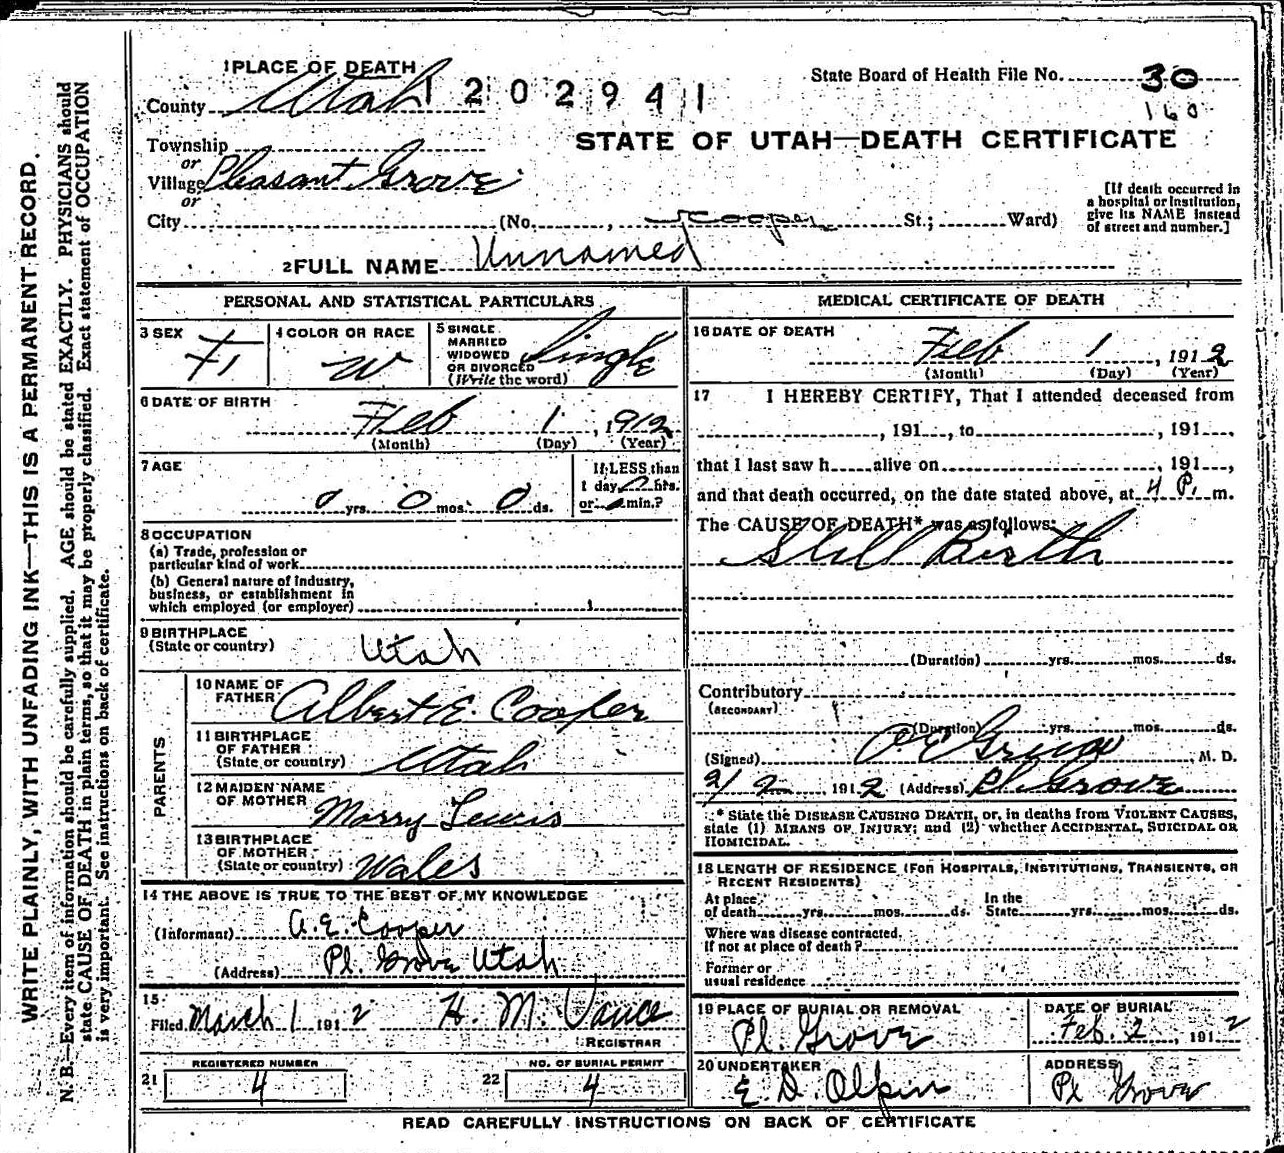 WRITE PLAINLY, WITH UNFADING INK—THIS IS A PERMANENT RECORD.
N. B.—Every item of information should be carefully supplied. AGE should be stated EXACTLY. PHYSICIANS should
state CAUSE OF DEATH in plain terms, so that it may be properly classified. Exact statement of OCCUPATION
is very important. See instructions on back of certificate.
1 PLACE OF DEATH
County Utah
1202941
State Board of Health File No. 30
160
STATE OF UTAH—DEATH CERTIFICATE
Township
or
Village Pleasant Grove
or
City (No. , Cooper St.; Ward)
[If death occurred in
a hospital or institution,
give its NAME instead
of street and number.]
2 FULL NAME Unnamed
PERSONAL AND STATISTICAL PARTICULARS
3 SEX F.
4 COLOR OR RACE W
5 SINGLE
MARRIED
WIDOWED
OR DIVORCED
(Write the word) Single
6 DATE OF BIRTH
Feb 1, 1912
(Month) (Day) (Year)
7 AGE
0 yrs. 0 mos. 0 ds.
If LESS than
1 day, 0 hrs.
or min.?
8 OCCUPATION
(a) Trade, profession or
particular kind of work
(b) General nature of industry,
business, or establishment in
which employed (or employer)
9 BIRTHPLACE
(State or country) Utah
PARENTS
10 NAME OF
FATHER Albert E. Cooper
11 BIRTHPLACE
OF FATHER
(State or country) Utah
12 MAIDEN NAME
OF MOTHER Marry Lewis
13 BIRTHPLACE
OF MOTHER
(State or country) Wales
14 THE ABOVE IS TRUE TO THE BEST OF MY KNOWLEDGE
(Informant) A. E. Cooper
(Address) Pl. Grove Utah
15
Filed March 1 1912 H. M. Vance
REGISTRAR
REGISTERED NUMBER
21 4
NO. OF BURIAL PERMIT
22 4
MEDICAL CERTIFICATE OF DEATH
16 DATE OF DEATH
Feb 1, 1912
(Month) (Day) (Year)
17 I HEREBY CERTIFY, That I attended deceased from
, 191 , to , 191 ,
that I last saw h alive on , 191 ,
and that death occurred, on the date stated above, at 4 P. m.
The CAUSE OF DEATH* was as follows:
Still Birth
(Duration) yrs. mos. ds.
Contributory
(SECONDARY)
(Duration) yrs. mos. ds.
(Signed) , M. D.
2/2 1912 (Address) Pl. Grove
* State the DISEASE CAUSING DEATH, or, in deaths from VIOLENT CAUSES,
state (1) MEANS OF INJURY; and (2) whether ACCIDENTAL, SUICIDAL OR
HOMICIDAL.
18 LENGTH OF RESIDENCE (FOR HOSPITALS, INSTITUTIONS, TRANSIENTS, OR
RECENT RESIDENTS)
At place of death yrs. mos. ds. In the State yrs. mos. ds.
Where was disease contracted,
If not at place of death?
Former or
usual residence
19 PLACE OF BURIAL OR REMOVAL
Pl. Grove
DATE OF BURIAL
Feb. 2, 1912
20 UNDERTAKER
E. D. Olpin
ADDRESS
Pl Grove
READ CAREFULLY INSTRUCTIONS ON BACK OF CERTIFICATE